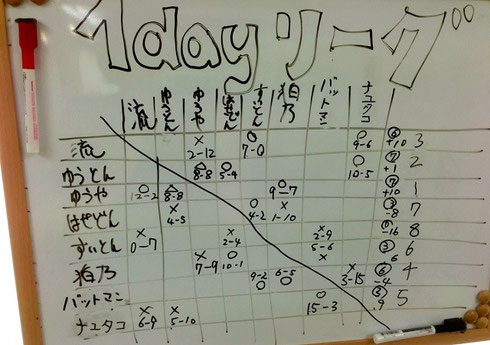 1dayリーグ
流 ゆうとん ゆうや はせどん すいとん 狛乃 バットマン ナユタコ
流 × 2-12 ○ 7-0 ○ 9-6 ⑥ +10 3
ゆうとん △ 8-8 ○ 5-4 ○ 10-5 ⑦ +1 2
ゆうや ○ 12-2 △ 8-8 ○ 9-7 ⑦ +10 1
はせどん × 4-5 ○ 4-2 × 1-10 ③ -8 7
すいとん × 0-7 × 2-4 × 2-9 -16 8
狛乃 × 7-9 ○ 10-1 5-6 × ③ 6 6
バットマン 9-2 ○ 6-5 ○ × 3-15 ⑥ -4 4
ナユタコ × 6-9 × 5-10 ○ 15-3 ③ 9 5